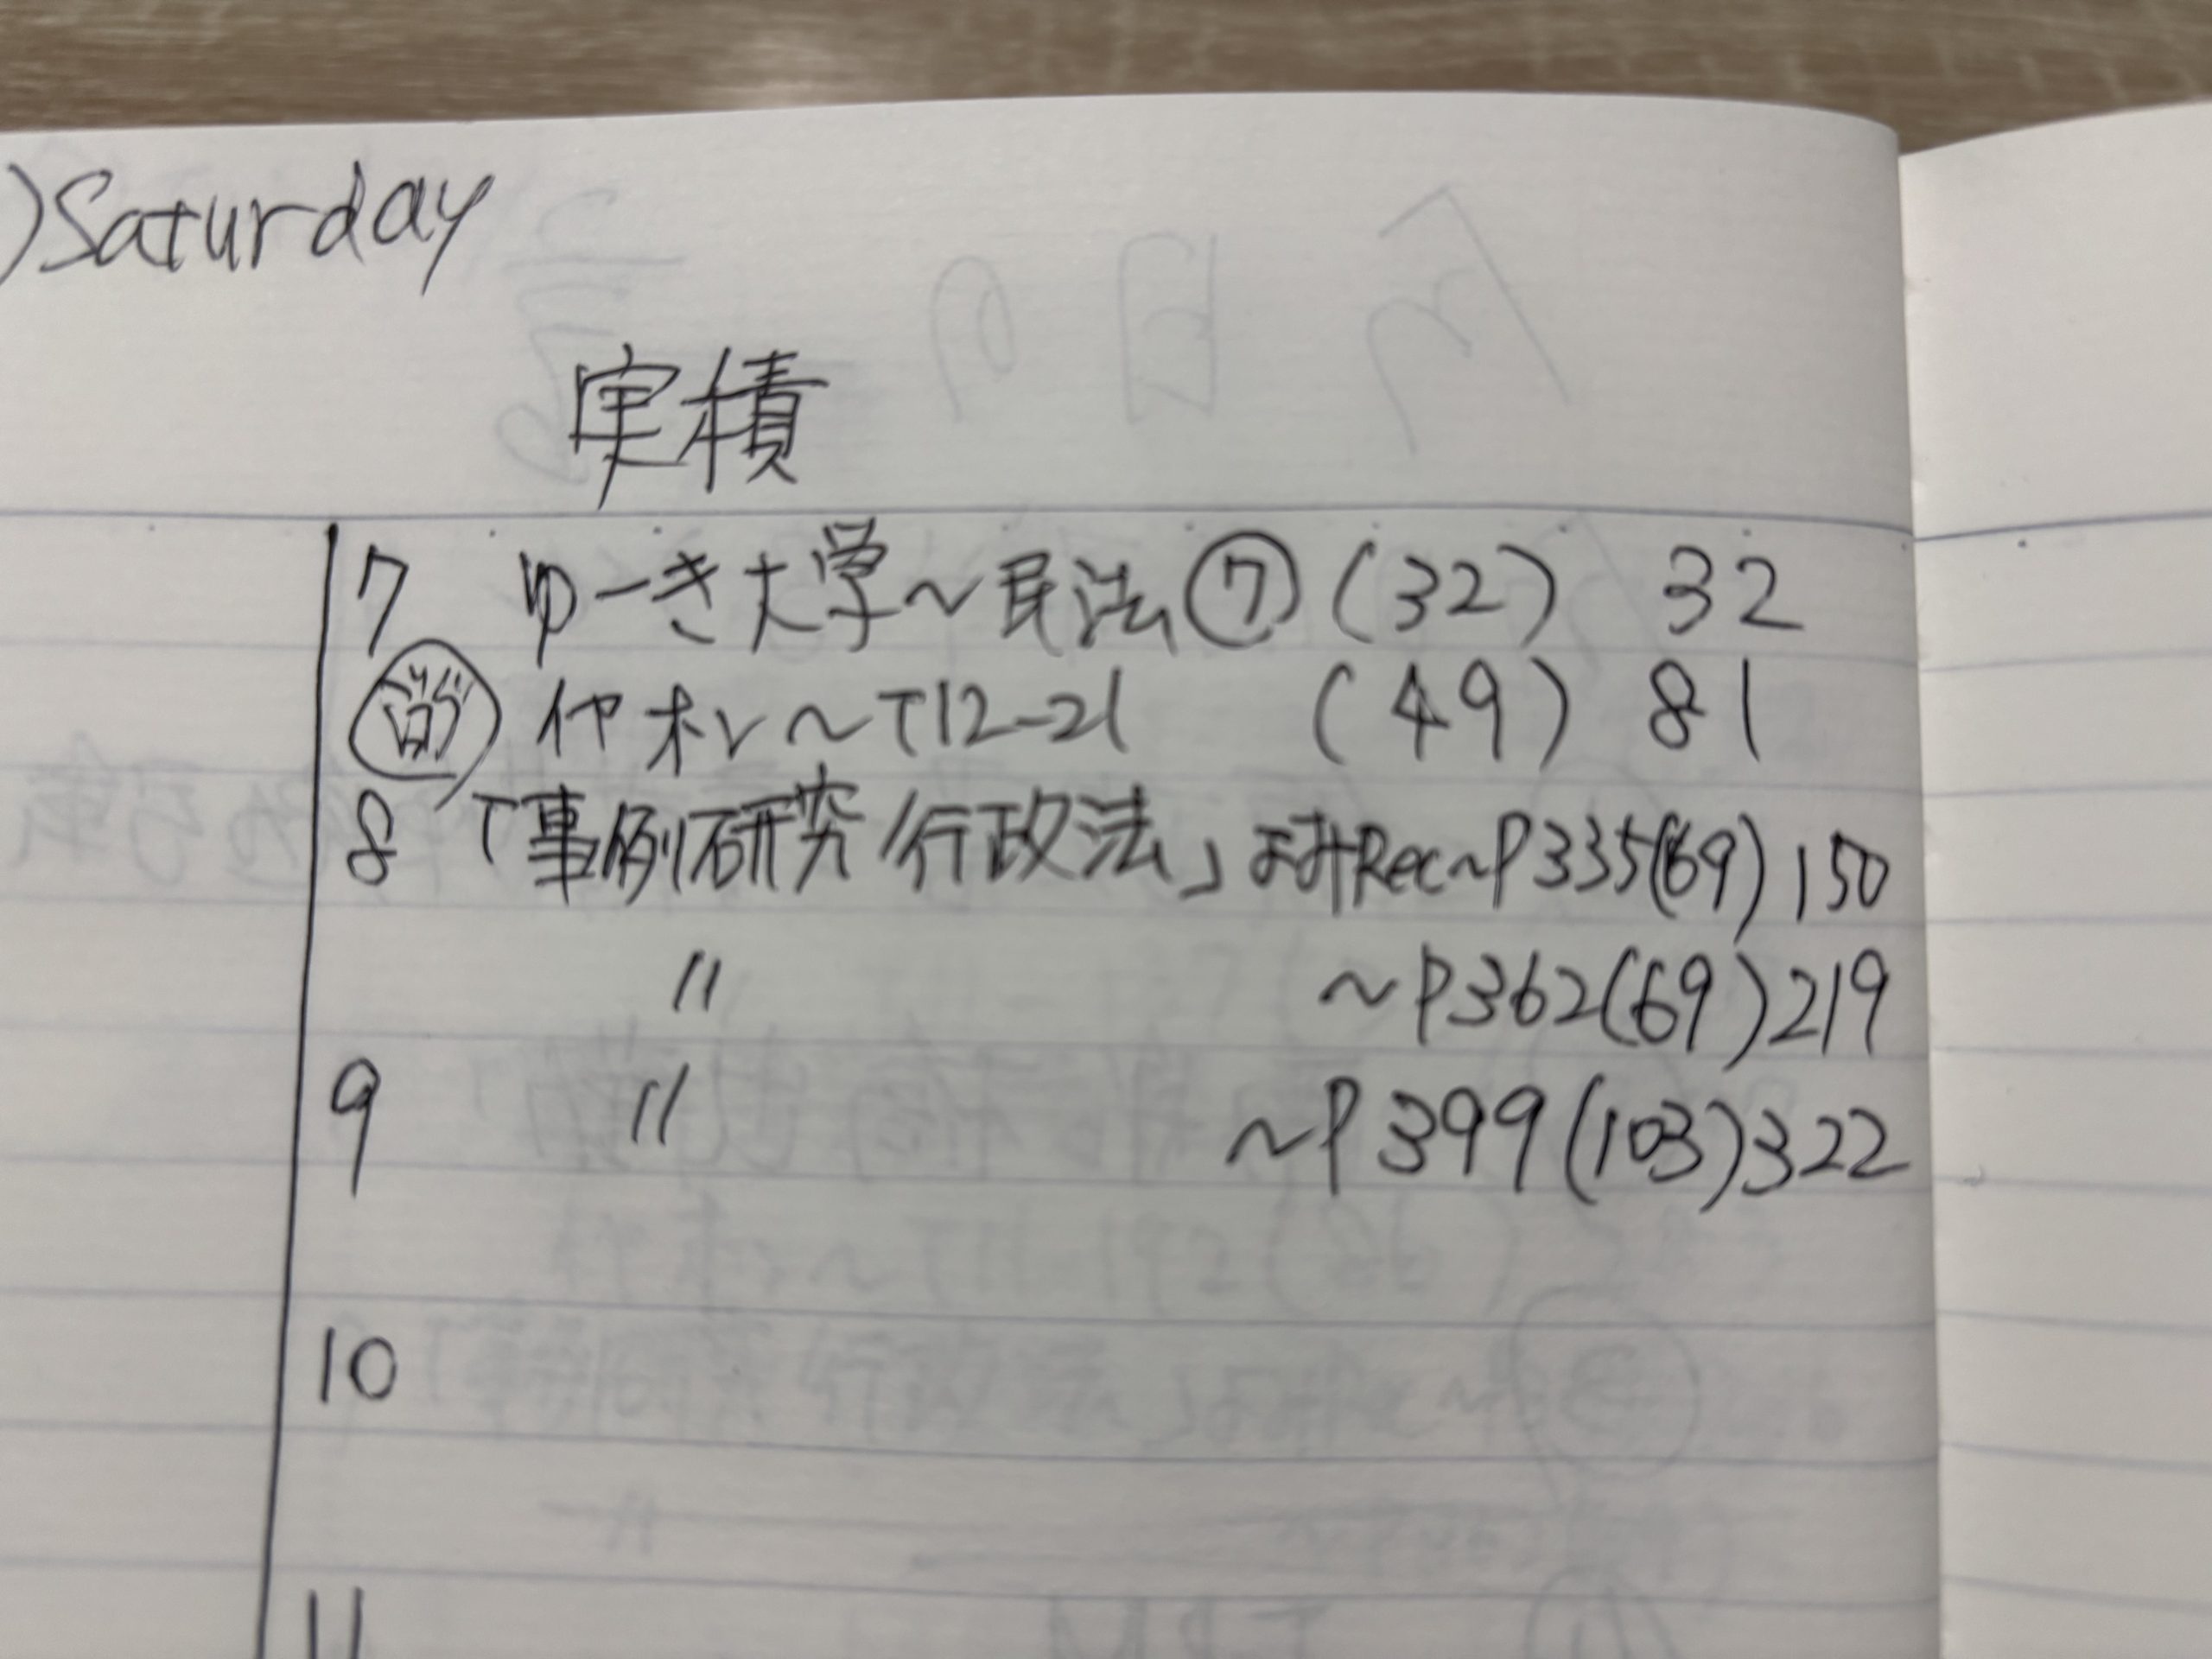 )Saturday
実積
7 ゆーき大学〜民法⑦ (32) 32
イヤホン〜T12-21 (49) 81
8 「事例研究行政法」よみRec〜P335(69) 150
〃 〜P362(69)219
9 〃 〜P399(103)322
10
11